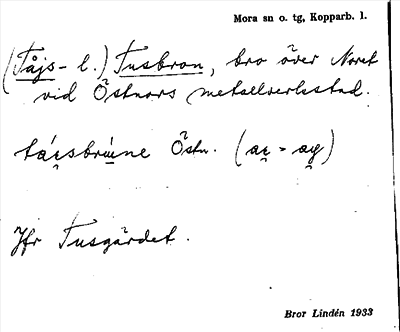 Mora sn o. tg, Kopparb. l.
(Tåjs- l.) Tusbron, bro över Noret
vid Östnors metallverkstad.
tái̯sbrúne Östn. (ai̯ = ay̯)
Jfr Tusgärdet.
Bror Lindén 1933